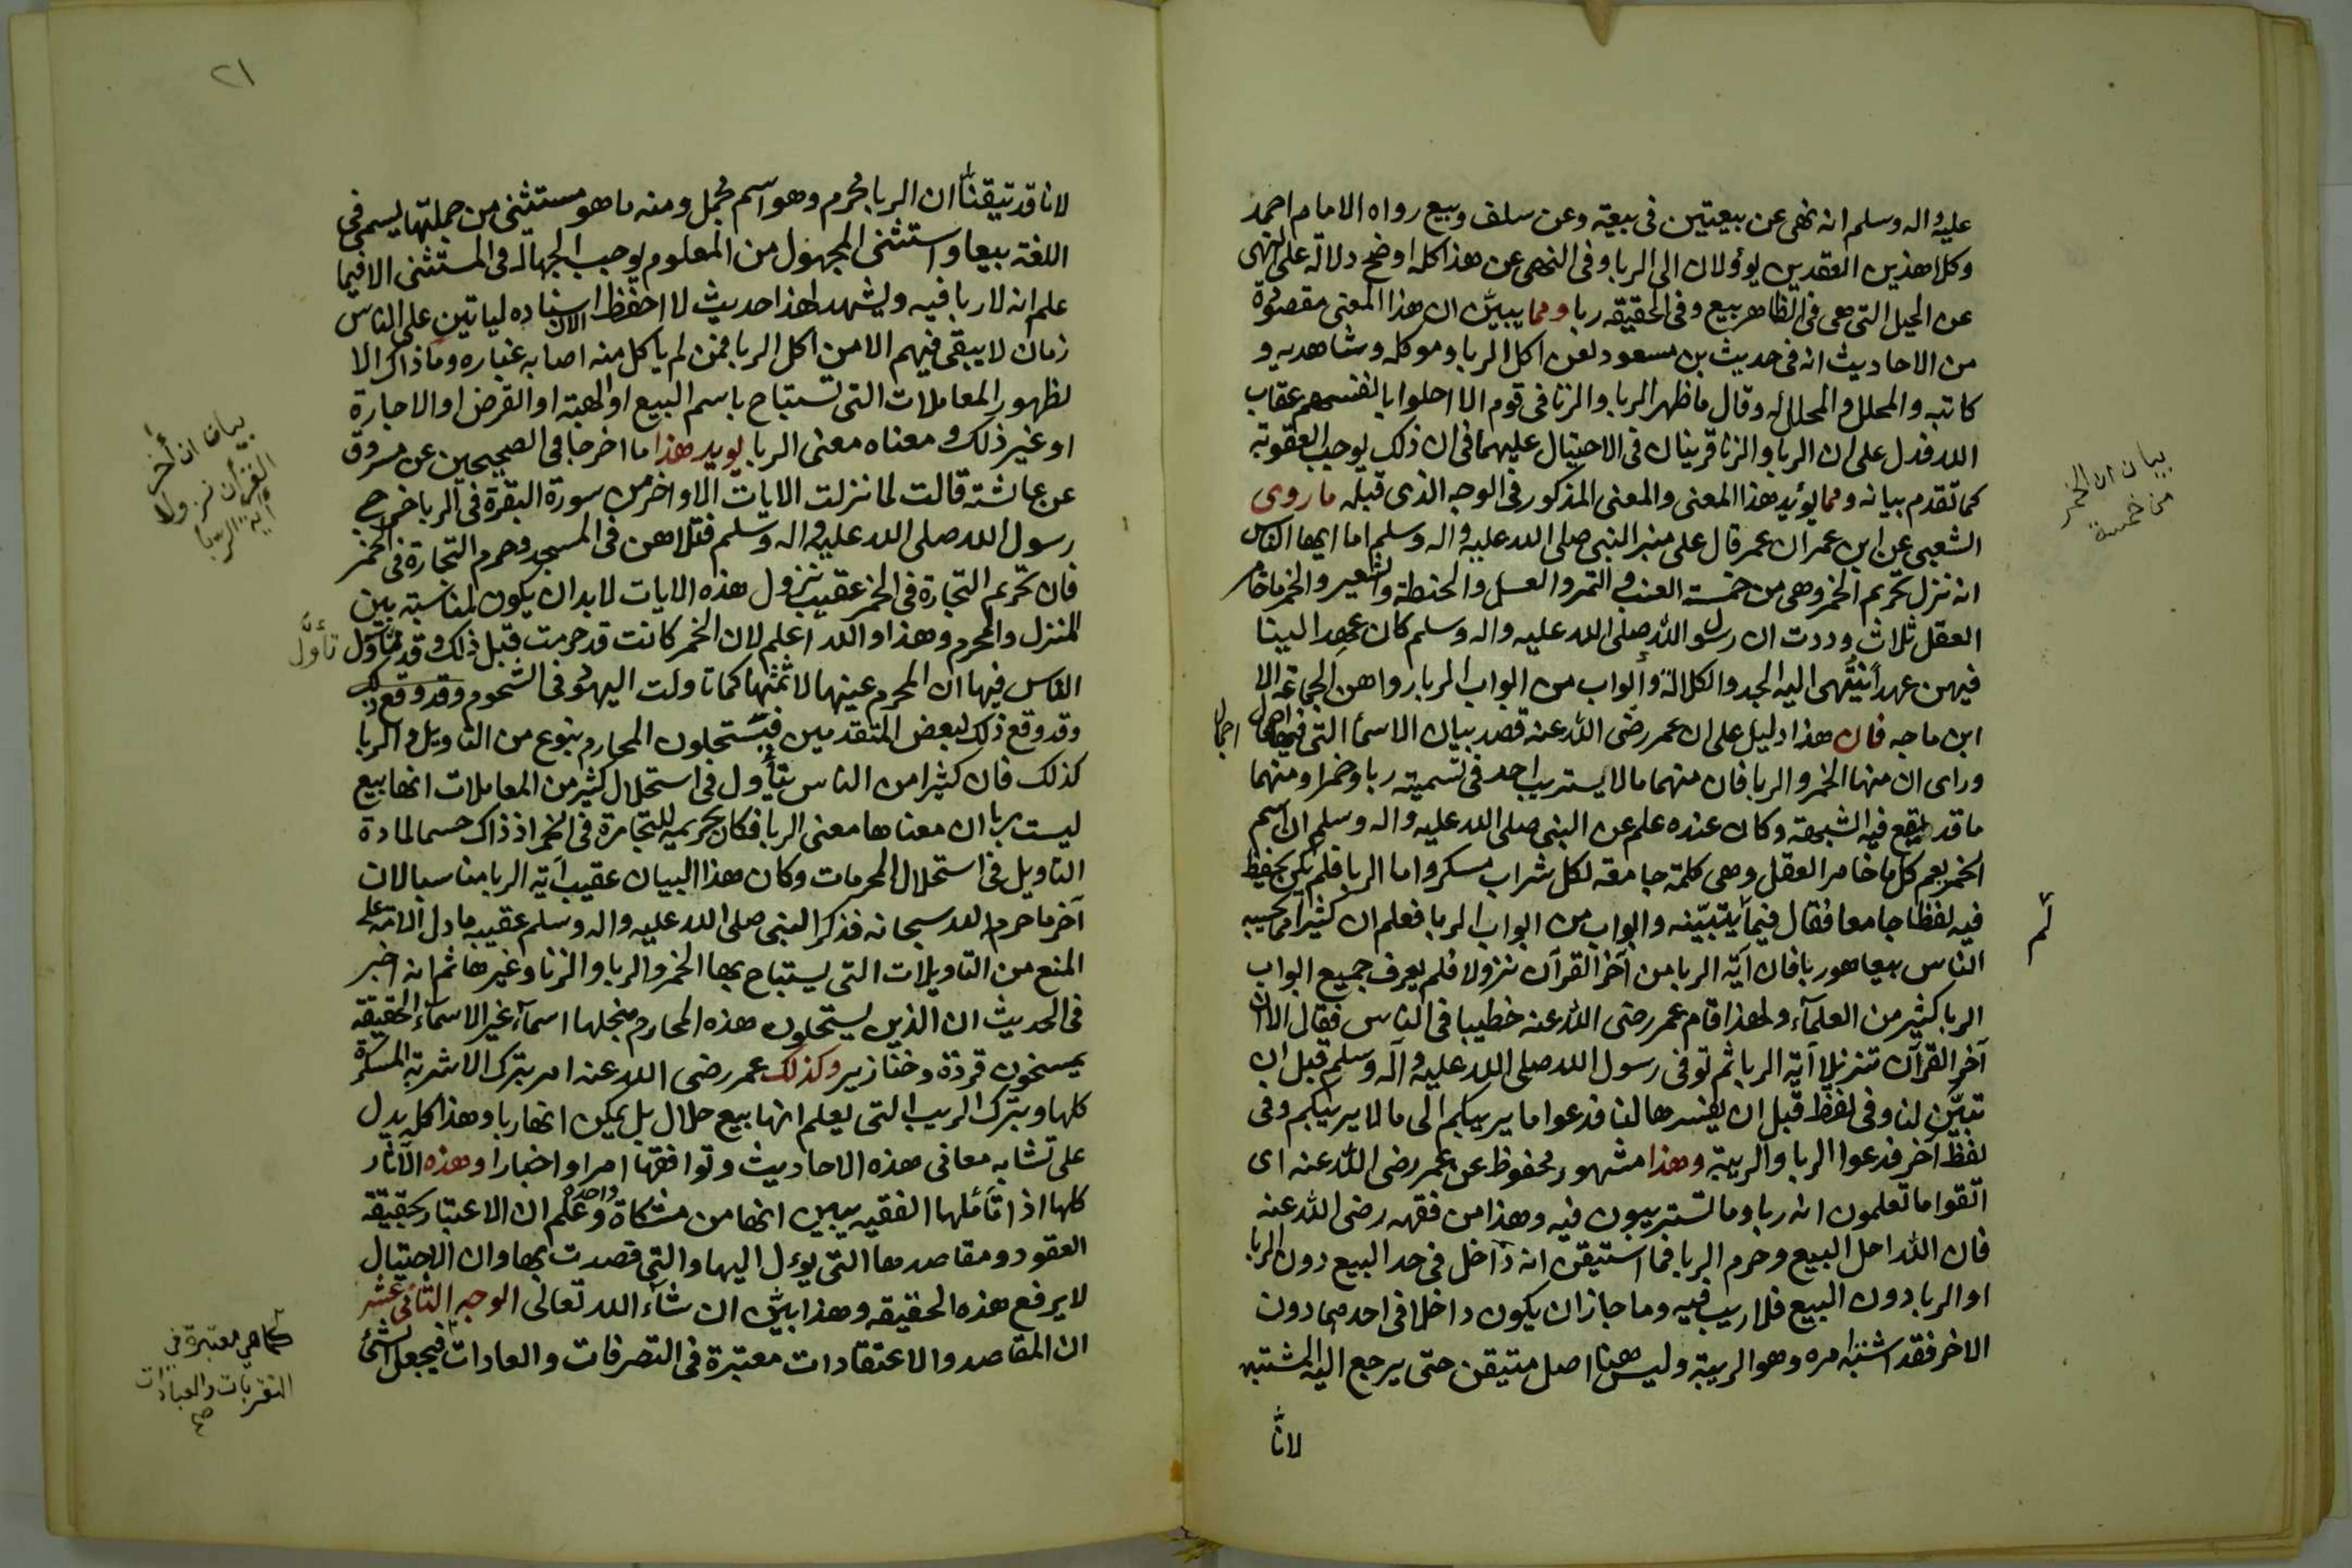 عليه واله وسلم انه نهى عن بيعتين فى بيعة وعن سلف وبيع رواه الامام احمد
وكلا هذين العقدين يؤولان الى الربا وفى النهى عن هذا كله اوضح دلالة على النهى
عن الحيل التى هى فى الظاهر بيع وفى الحقيقة ربا ومما يبيّن ان هذا المعنى مقصود
من الاحاديث انه فى حديث بن مسعود لعن اكل الربا وموكله وشاهديه و
كاتبه والمحلل والمحلل له وقال ما ظهر الربا والزنا فى قوم الا احلوا بانفسهم عقاب
الله فدل على ان الربا والزنا قرينان فى الاحتيال عليهما فى ان ذلك يوجب العقوبة
كما تقدم بيانه ومما يؤيد هذا المعنى والمعنى المذكور فى الوجه الذى قبله ما روى
الشعبى عن ابن عمر ان عمر قال على منبر النبى صلى الله عليه واله وسلم اما ايها الناس
بيان ان الخمر
من خمسة
انه نزل تحريم الخمر وهى من خمسة العنب والتمر والعسل والحنطة والشعير والخمر ما خامر
العقل ثلاث وددت ان رسول الله صلى الله عليه واله وسلم كان عهد الينا
فيهن عهدا ننتهى اليه الجد والكلالة وأبواب من ابواب الربا رواهن الجماعة الا
ابن ماجه فان هذا دليل على ان عمر رضى الله عنه قصد بيان الاسما التى فيها اجمال
وراى ان منها الخمر والربا فان منهما مالا يستريب احد فى تسميته ربا وخمرا ومنهما
ما قد يقع فيه الشبهة وكان عنده علم عن النبى صلى الله عليه واله وسلم ان اسم
الخمر يعم كل ما خامر العقل وهى كلمة جامعة لكل شراب مسكر واما الربا فلم يكن يحفظ
فيه لفظا جامعا فقال فيما يتبيّنه وابواب من ابواب الربا فعلم ان كثيرا مما يحسبه
لم
الناس بيعا هو ربا فان آية الربا من آخر القرآن نزولا فلم يعرف جميع ابواب
الربا كثير من العلمآء ولهذا قام عمر رضى الله عنه خطيبا فى الناس فقال الا ان
آخر القرآن تنزيلا آية الربا ثم توفى رسول الله صلى الله عليه وآله وسلم قبل ان
تبيّن لنا وفى لفظ قبل ان يفسرها لنا فدعوا ما يريبكم الى ما لا يريبكم وفى
لفظ آخر فدعوا الربا والريبة وهذا مشهور محفوظ عن عمر رضى الله عنه اى
اتقوا ما تعلمون انه ربا وما تستريبون فيه وهذا من فقهه رضى الله عنه
فان الله احل البيع وحرم الربا فما استيقن انه داخل فى حد البيع دون الربا
او الربا دون البيع فلا ريب فيه وما جاز ان يكون داخلا فى احدهما دون
الاخر فقد اشتبه امره وهو الريبة وليس هنا اصل متيقن حتى يرجع اليه المشتبه
لانّا
٢١
لانا قد تيقنا ان الربا محرم وهو اسم مجمل ومنه ما هو مستثنى من جملتها يسمى فى
اللغة بيعا واستثنى المجهول من المعلوم يوجب الجهالة فى المستثنى الا فيما
علم انه لا ربا فيه ويشهد لهذا حديث لا احفظ الان اسناده لياتين على الناس
زمان لا يبقى فيهم الا من اكل الربا فمن لم ياكل منه اصابه غباره وما ذاك الا
لظهور المعاملات التى تستباح باسم البيع او الهبة او القرض او الاجارة
او غير ذلك ومعناه معنى الربا يويد هذا ما اخرجا فى الصحيحين عن مسروق
بيان ان أخر
القرآن نزولا
اية الربا
عن عائشة قالت لما نزلت الايات الاواخر من سورة البقرة فى الربا خرج
رسول الله صلى الله عليه واله وسلم فتلاهن فى المسجد وحرم التجارة فى الخمر
فان تحريم التجارة فى الخمر عقيب نزول هذه الايات لابد ان يكون لمناسبة بين
المنزل والمحرم وهذا والله اعلم لان الخمر كانت قد حرمت قبل ذلك وقد تأوّل
الناس فيها ان المحرم عينها لا ثمنها كما تاولت اليهود فى الشحوم وقد وقع ذلك
وقد وقع ذلك لبعض المتقدمين فيستحلون المحارم بنوع من التاويل والربا
كذلك فان كثيرا من الناس يتأول فى استحلال كثير من المعاملات انها بيع
ليست بربا ان معناها معنى الربا فكان تحريمه للتجارة فى الخمر اذ ذاك حسما لمادة
التاويل فى استحلال المحرمات وكان هذا البيان عقيب آية الربا مناسبا لان
آخر ما حرم الله سبحانه فذكر النبى صلى الله عليه واله وسلم عقيبه ما دل الامة على
المنع من التاويلات التى يستباح بها الخمر والربا والزنا وغيرها ثم انه اخبر
فى الحديث ان الذين يستحلون هذه المحارم بنحلها اسمآء غير الاسماء الحقيقة
يمسخون قردة وخنازير وكذلك عمر رضى الله عنه امر بترك الاشربة المسكرة
كلها وبترك الريب التى يعلم انها بيع حلال بل يمكن انها ربا وهذا كله يدل
على تشابه معانى هذه الاحاديث وتوافقها امرا واخبارا وهذه الآثار
كلها اذا تأملها الفقيه يتبين انها من مشكاة واحدة وعلم ان الاعتبار بحقيقة
العقود ومقاصدها التى يؤل اليها والتى قصدت بها وان الاحتيال
لا يرفع هذه الحقيقة وهذا بيّن ان شآء الله تعالى الوجه الثانى عشر
ان المقاصد والاعتقادات معتبرة فى التصرفات والعادات فيجعل الشئ
كما هى معتبرة فى
التقربات والعبادات
صح